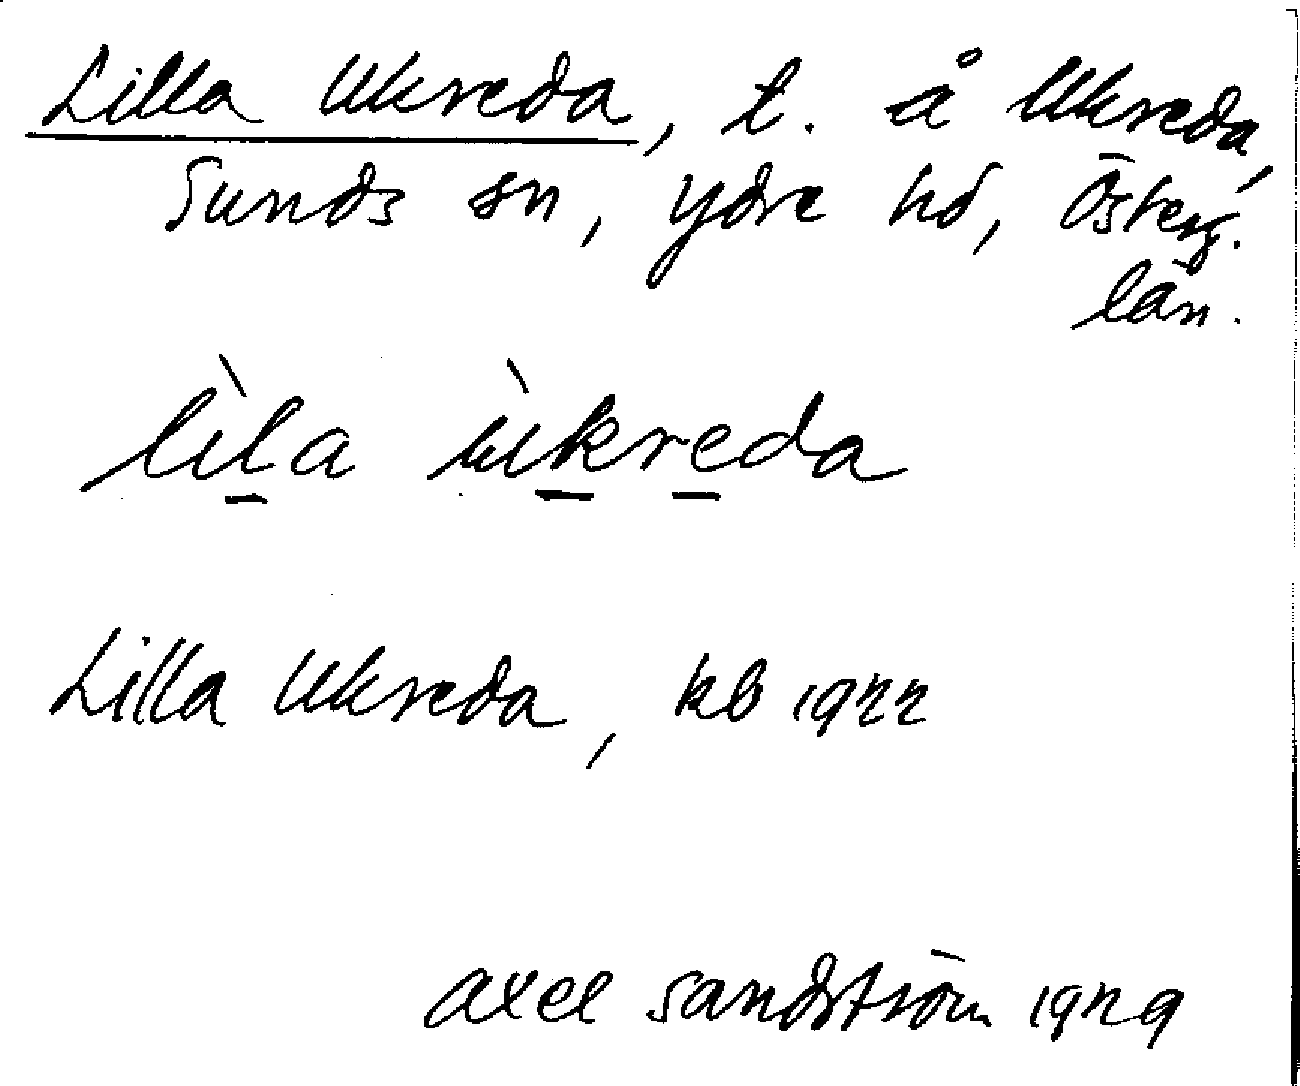 Lilla Ukreda, t. å Ukreda,
Sunds sn, Ydre hd, Österg.
län.
lìla ùkreda
Lilla Ukreda, kb 1922
Axel Sandström 1929